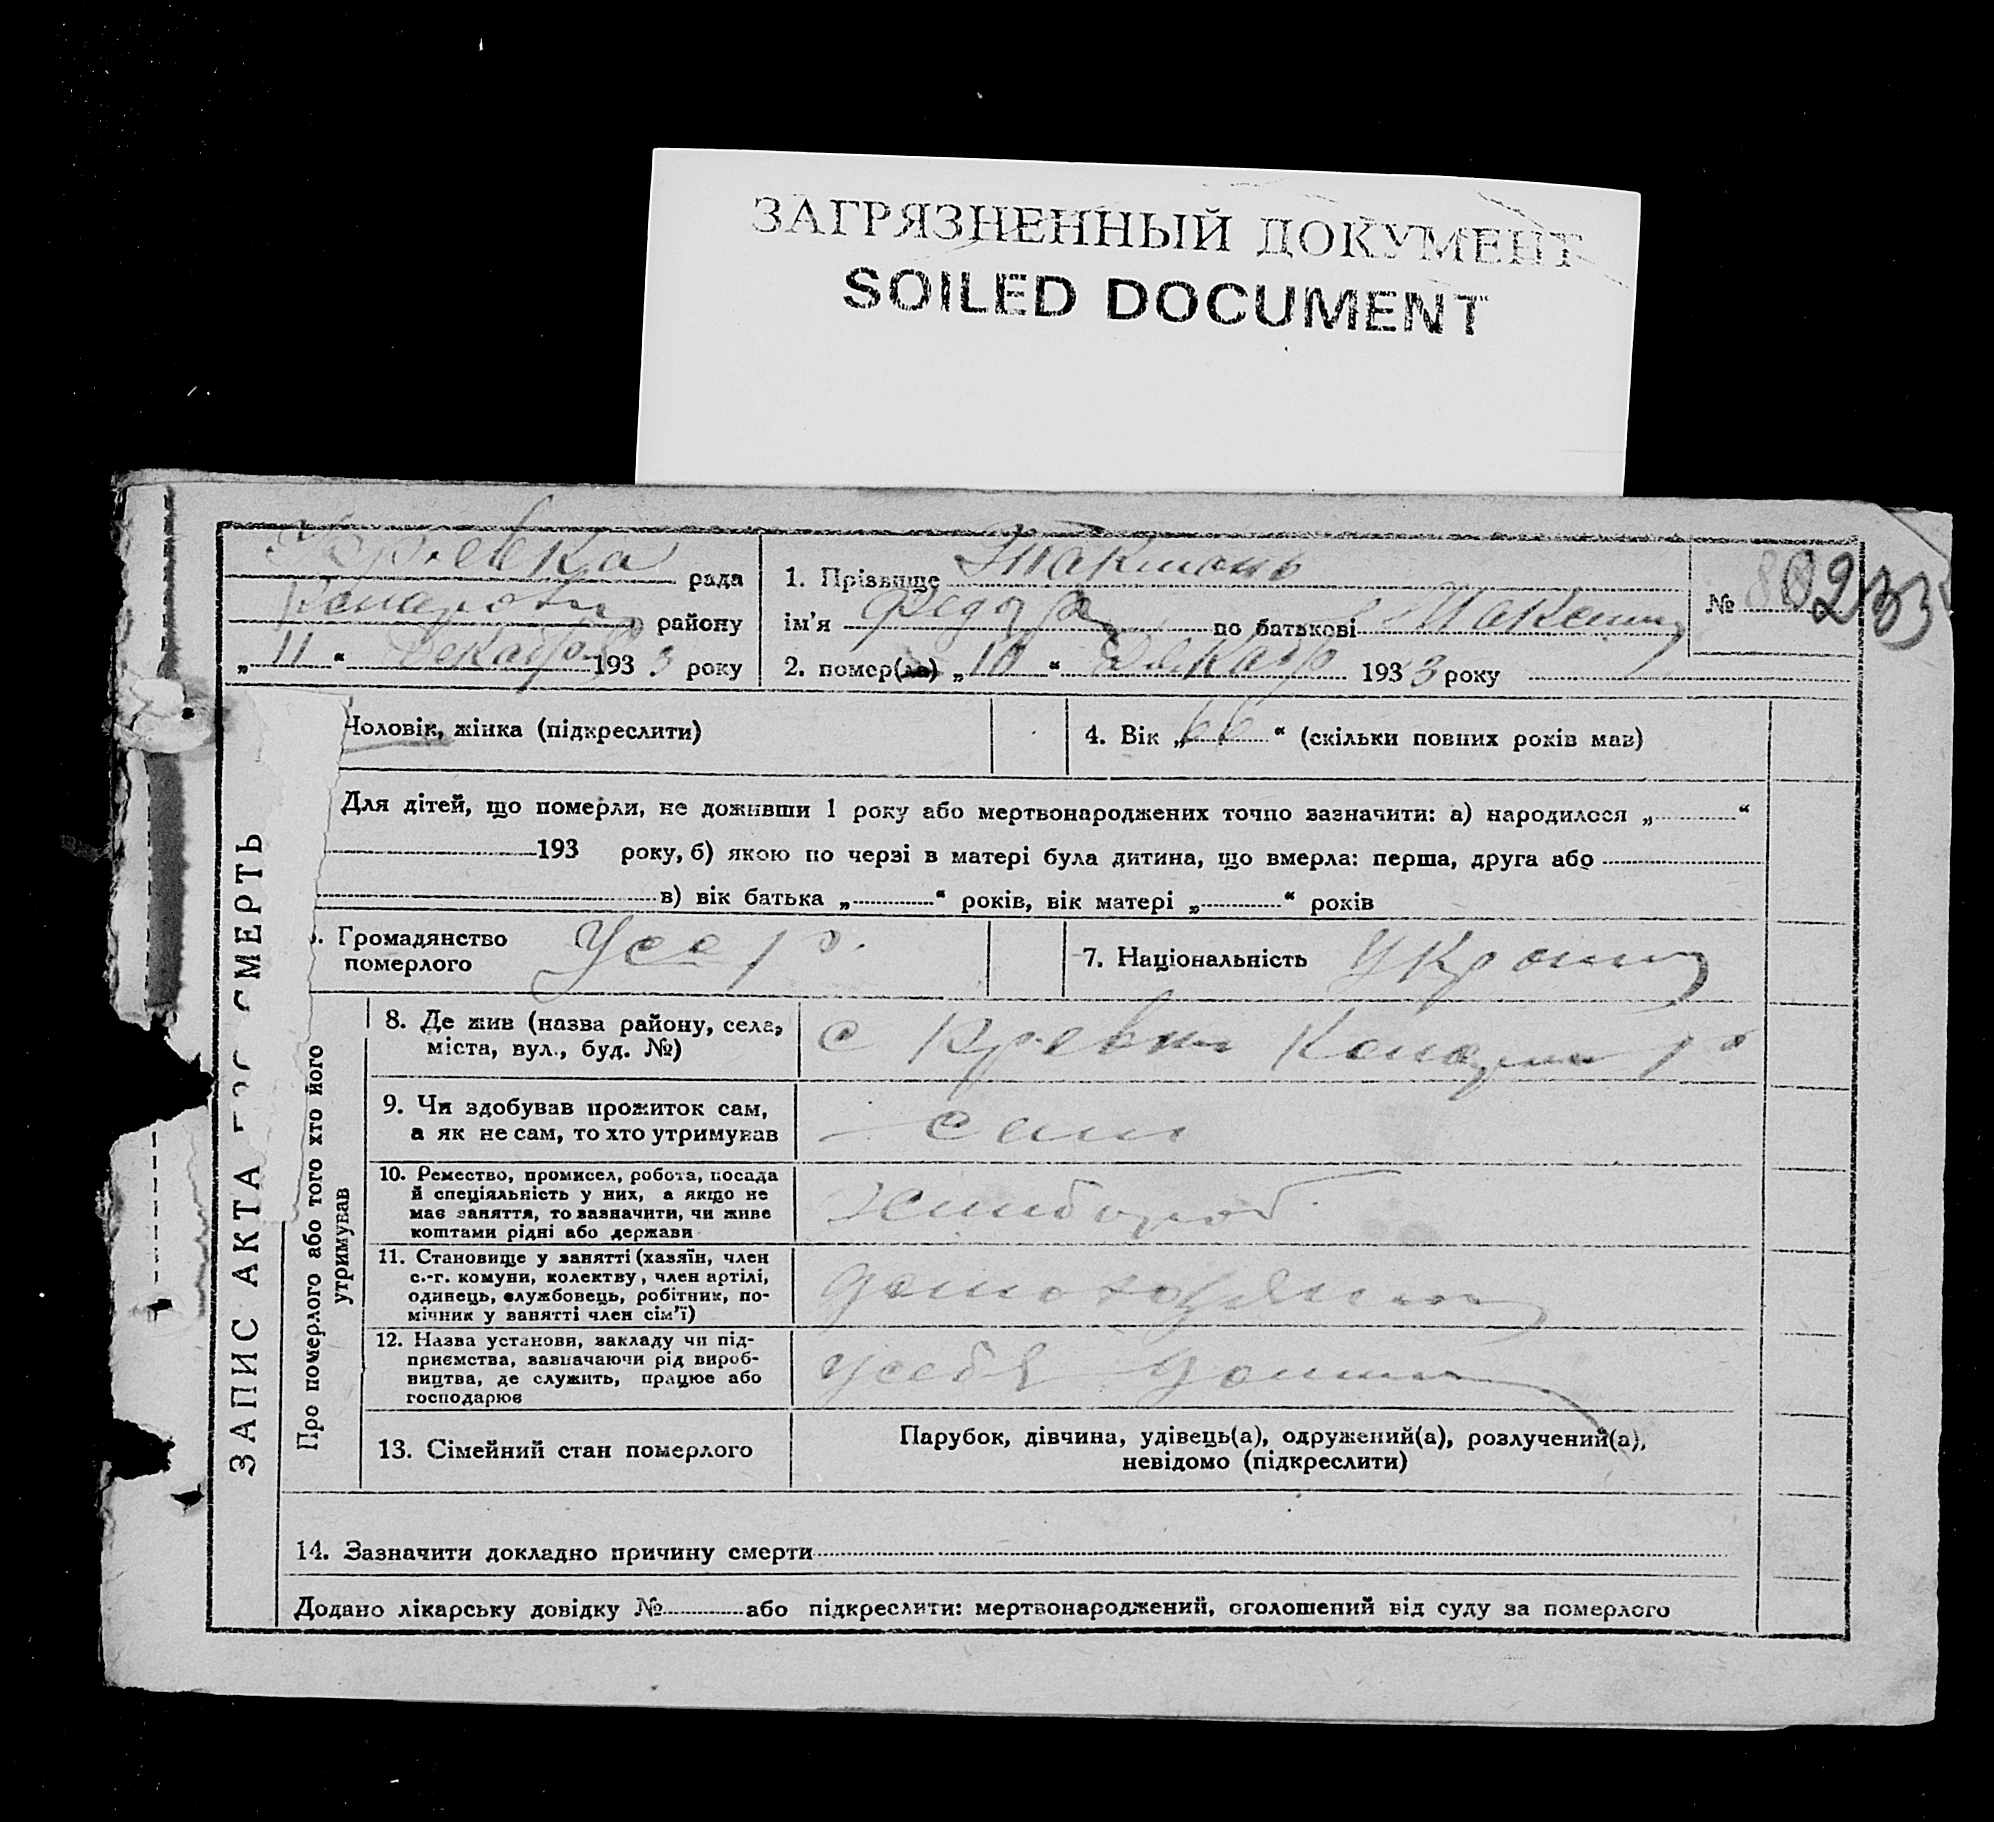 ЗАГРЯЗНЕННЫЙ ДОКУМЕНТ
SOILED DOCUMENT
рада
району
„ 11 “ Декабр 193 3 року
1. Прізвище
ім'я Федор по батькові Максим
2. помер(ла) „ 10 “ Декабр 193 3 року
№ 233
Чоловік, жінка (підкреслити)
4. Вік „ 66 “ (скільки повних років мав)
Для дітей, що померли, не доживши 1 року або мертвонароджених точно зазначити: а) народилося „ “
193 року, б) якою по черзі в матері була дитина, що вмерла: перша, друга або
в) вік батька „ “ років, вік матері „ “ років
Громадянство
померлого
Усср
7. Національність Украин
ЗАПИС АКТА СМЕРТЬ
Про померлого або того хто його
утримував
8. Де жив (назва району, села,
міста, вул., буд. №)
с
9. Чи здобував прожиток сам,
а як не сам, то хто утримував
сам
10. Ремество, промисел, робота, посада
й спеціяльність у них, а якщо не
має заняття, то зазначити, чи живе
коштами рідні або держави
хлибороб
11. Становище у занятті (хазяїн, член
с.-г. комуни, колектву, член артілі,
одинець, службовець, робітник, по-
мічник у занятті член сім'ї)
12. Назва установи, закладу чи під-
приємства, зазначаючи рід вироб-
ництва, де служить, працює або
господарює
усебя
13. Сімейний стан померлого
Парубок, дівчина, удівець(а), одружений(а), розлучений(а),
невідомо (підкреслити)
14. Зазначити докладно причину смерти
Додано лікарську довідку № або підкреслити: мертвонароджений, оголошений від суду за померлого